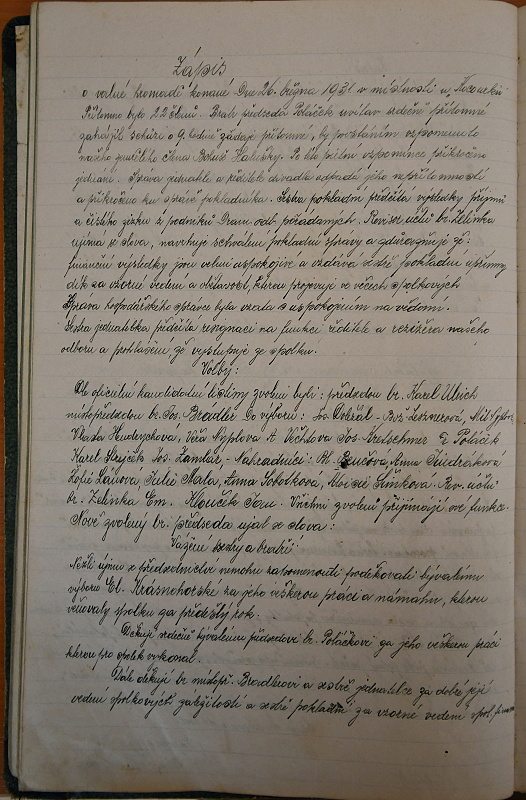 Zápis
o valné hromadě konané Dne 26. března 1931 v místnosti u
Přítomno bylo 22 členů. Bratr předseda Poláček uvítav srdečně přítomné
zahájil schůzi o 9. hodině žádaje přítomné, by povstáním vzpomenuto
našeho zemřelého člena Bohuš Halušky. Po této pietní vzpomínce přikročeno
jednání. Zpráva jednatele a ředitele divadla odpadá jeho nepřítomností
a přikročeno ku zprávě pokladníka. Sestra pokladní přečítá výsledky příjmů
a čistého zisku z podniků Dram. odb. pořádaných. Revisor účtů br. Zelinka
ujímá se slova, navrhuje schválení pokladní zprávy a zdůrazňuje že:
finanční výsledky jsou velmi uspokojivé a vzdává sestře pokladní upřímný
dík za vzorné vedení a obětavost, kterou projevuje ve věcech spolkových
Zpráva hospodářského správce byla vzata s uspokojením na vědomí.
Sestra jednatelka přečítá resignaci na funkci ředitele a režiséra našeho
odboru a prohlášení že vystupuje ze spolku.
Volby:
Dle oficielní kandidátní listiny zvoleni byli: předsedou br. Karel Ulrich
místopředsedou br. Jos. Bradler Do výboru: Bož. Lexnerová,
Vlasta Hendrychova, Věra Syplova A. Věchtova Jos. Kretschmer E. Poláček
Karel Slejček Jos. Žantar, - Náhradníci: Anna
Žofie Janova Julie Marta, Anna Sobotkova, Aloisie Šimkova. Rev. účtů
br. Zelinka Em. Hlouček Jan. Všichni zvolení přijímají své funkce.
Nově zvolený br. předseda ujal se slova:
Vážené sestry a bratři!
Nežli ujmu se předsednictví nemohu zapomenouti poděkovati bývalému
výboru El. Krásnohorské za jeho veškerou práci a námahu, kterou
věnovaly spolku za předešlý rok.
Děkuji srdečně bývalému předsedovi br. Poláčkovi za jeho veškerou práci
kterou pro spolek vykonal.
Dále děkuji br. místopř. Bradlerovi a sestře jednatelce za dobré její
vedení spolkových záležitostí a sestře pokladní za vzorné vedení spol.